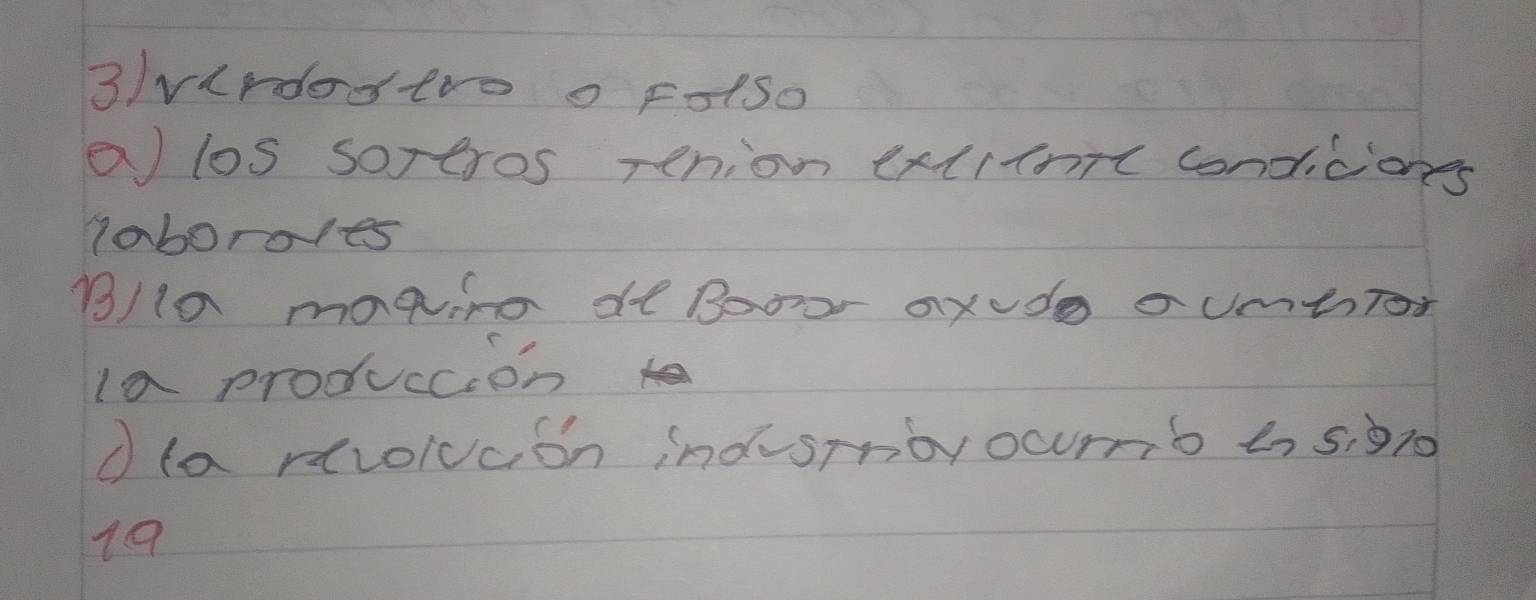 3) verdadero o Falso
a) los sastros tenian excelente condiciones
laborales
B) la maquina de Bapor axudo aumentar
la producción
c) la revolución industrial ocurrio en siglo
19